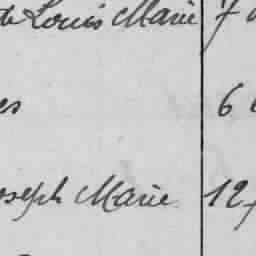 de Louis Marie 7
es 6
oseph Marie 12